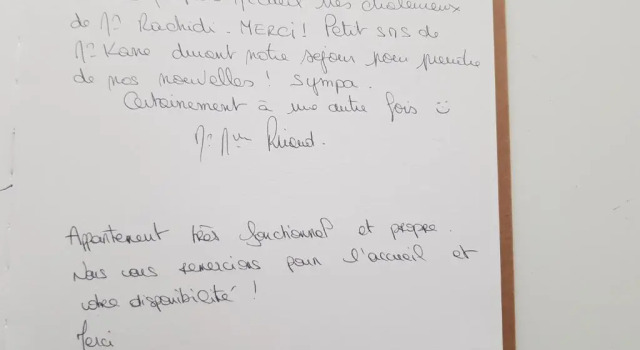 très chaleureux
de Mr Rachidi. MERCI! Petit sms de
Mr Kane durant notre séjour pour prendre
de nos nouvelles! Sympa.
Certainement à une autre fois
Mr Mme
Appartement très fonctionnel et propre.
Nous vous remercions pour l'accueil et
votre disponibilité!
Merci